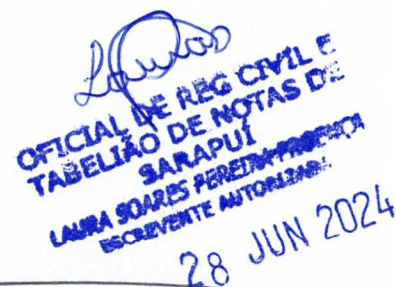 OFICIAL DE REG CIVIL E
TABELIÃO DE NOTAS DE
SARAPUÍ
LAURA SOARES PEREIRA
ESCREVENTE AUTORIZADA
28 JUN 2024